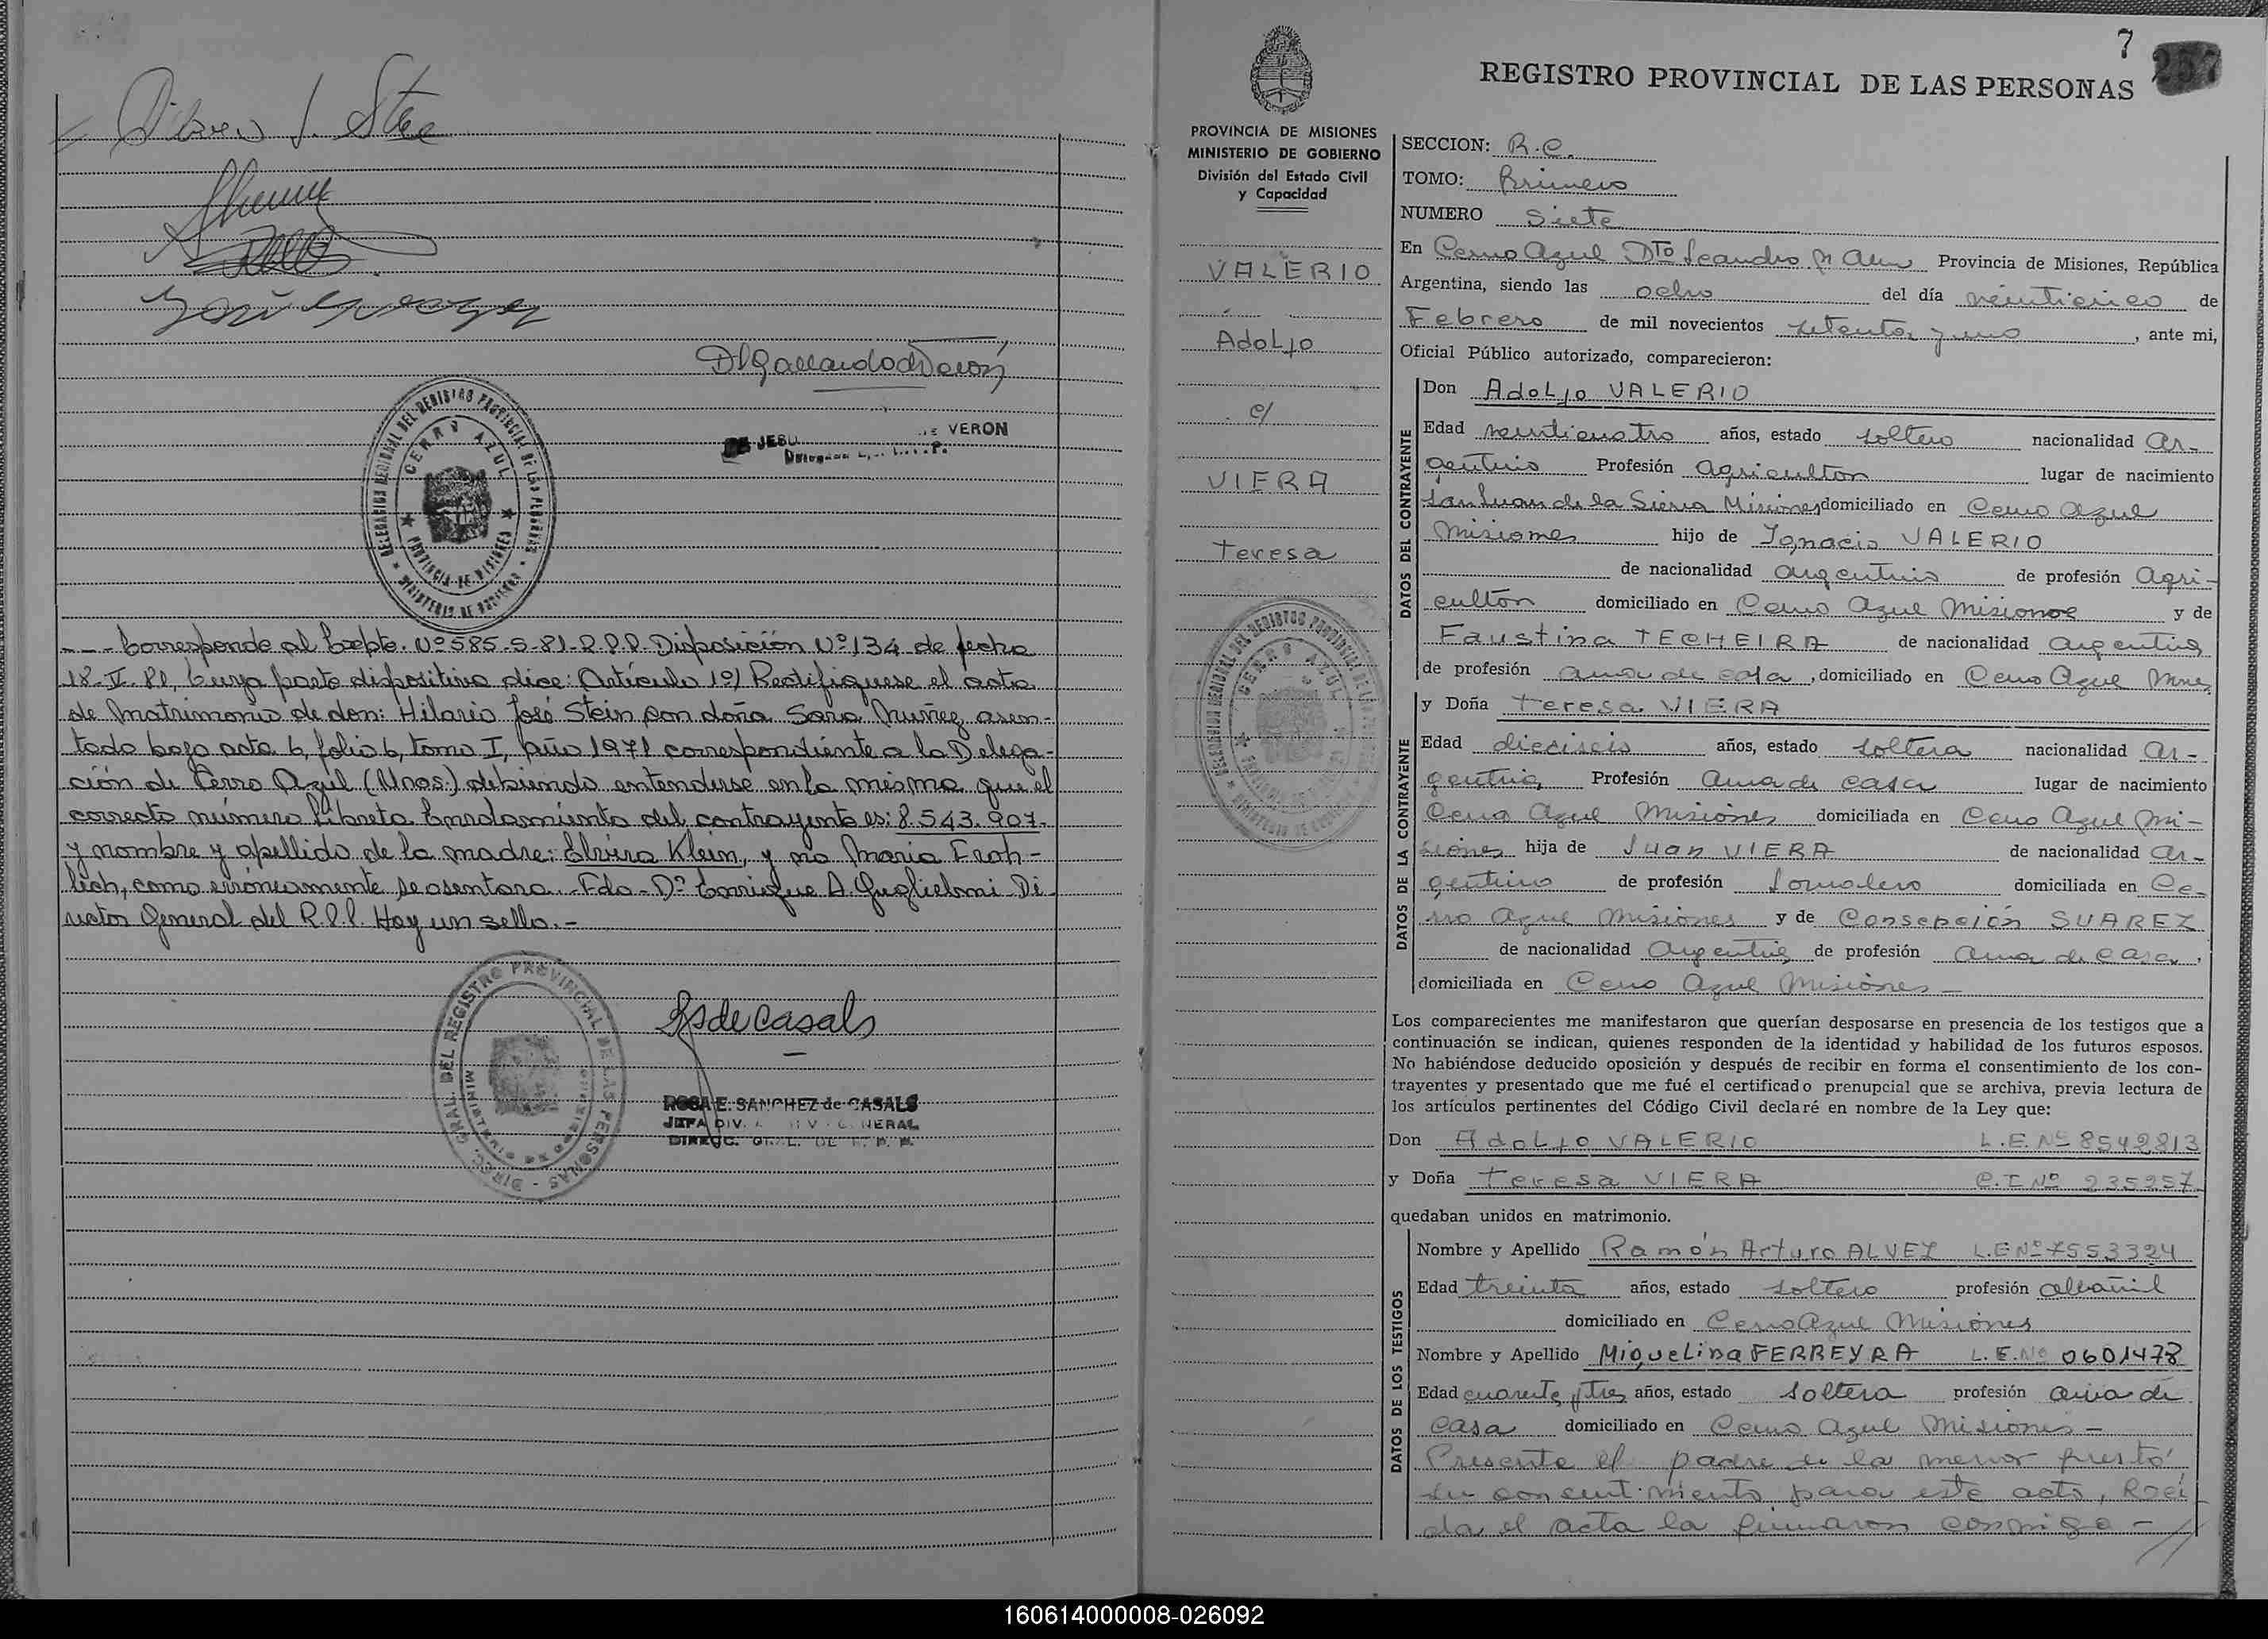 Hilario J. Stein
DelGallardo de Verón
DE JESU
DE VERON
DELEGACION REGIONAL DEL REGISTRO PROVINCIAL DE LAS PERSONAS
CERRO AZUL
PROVINCIA DE MISIONES
MINISTERIO DE GOBIERNO
--- Corresponde al Expte. Nº 585-S-81-R.P.P. Disposición Nº 134 de fecha
18-V-81, Cuya parte dispositiva dice: Artículo 1º) Rectifiquese el acta
de Matrimonio de don: Hilario José Stein con doña Sara Nuñez asen-
tada bajo acta 6, folio 6, tomo I, año 1971 correspondiente a la Delega-
ción de Cerro Azul (Mnes.) debiendo entenderse en la misma que el
correcto número Libreta Enrolamiento del contrayente es: 8.543.907.
y nombre y apellido de la madre: Elvira Klein, y no Maria Froh-
lich, como erróneamente se asentara.- Fdo- Dº Enrique A. Guglielmi Di-
rector General del R.P.P. Hay un sello.-
DIREC. GRAL. DEL REGISTRO PROVINCIAL DE LAS PERSONAS
RS de Casals
ROSA E. SANCHEZ de CASALS
JEFA DIV. GENERAL
DIRECC. GRAL. DEL R. P. P.
7
257
REGISTRO PROVINCIAL DE LAS PERSONAS
PROVINCIA DE MISIONES
MINISTERIO DE GOBIERNO
División del Estado Civil
y Capacidad
VALERIO
Adolfo
c/
VIERA
Teresa
DELEGACION REGIONAL DEL REGISTRO PROVINCIAL DE LAS PERSONAS
CERRO AZUL
SECCION: R.C.
TOMO: Primero
NUMERO Siete
En Cerro Azul Dto Leandro N Alem Provincia de Misiones, República
Argentina, siendo las ocho del día veinticinco de
Febrero de mil novecientos setenta y uno, ante mi,
Oficial Público autorizado, comparecieron:
DATOS DEL CONTRAYENTE
Don Adolfo VALERIO
Edad veinticuatro años, estado soltero nacionalidad ar-
gentino Profesión agricultor lugar de nacimiento
San Juan de la Sierra Misiones domiciliado en Cerro Azul
Misiones hijo de Ignacio VALERIO
de nacionalidad argentino de profesión Agri-
cultor domiciliado en Cerro Azul Misiones y de
Faustina TECHEIRA de nacionalidad argentina
de profesión ama de casa, domiciliado en Cerro Azul Mnes
DATOS DE LA CONTRAYENTE
y Doña Teresa VIERA
Edad dieciseis años, estado soltera nacionalidad ar-
gentina, Profesión ama de casa lugar de nacimiento
Cerro Azul Misiones domiciliada en Cerro Azul Mi-
siones hija de Juan VIERA de nacionalidad ar-
gentino de profesión Jornalero domiciliada en Ce-
rro Azul Misiones y de Consepción SUAREZ
de nacionalidad Argentina de profesión ama de casa,
domiciliada en Cerro Azul Misiones -
Los comparecientes me manifestaron que querían desposarse en presencia de los testigos que a
continuación se indican, quienes responden de la identidad y habilidad de los futuros esposos.
No habiéndose deducido oposición y después de recibir en forma el consentimiento de los con-
trayentes y presentado que me fué el certificado prenupcial que se archiva, previa lectura de
los artículos pertinentes del Código Civil declaré en nombre de la Ley que:
Don Adolfo VALERIO L.E.Nº 8542813
y Doña Teresa VIERA C.I Nº 235257
quedaban unidos en matrimonio.
DATOS DE LOS TESTIGOS
Nombre y Apellido Ramón Arturo ALVEZ L.E Nº 7553324
Edad treinta años, estado soltero profesión albañil
domiciliado en Cerro Azul Misiones
Nombre y Apellido Miquelina FERREYRA L.E.Nº 0601478
Edad cuarenta y tres años, estado soltera profesión ama de
casa domiciliado en Cerro Azul Misiones -
Presente el padre de la menor prestó
su consentimiento para este acto, Leí
da el acta la firmaron conmigo -
160614000008-026092